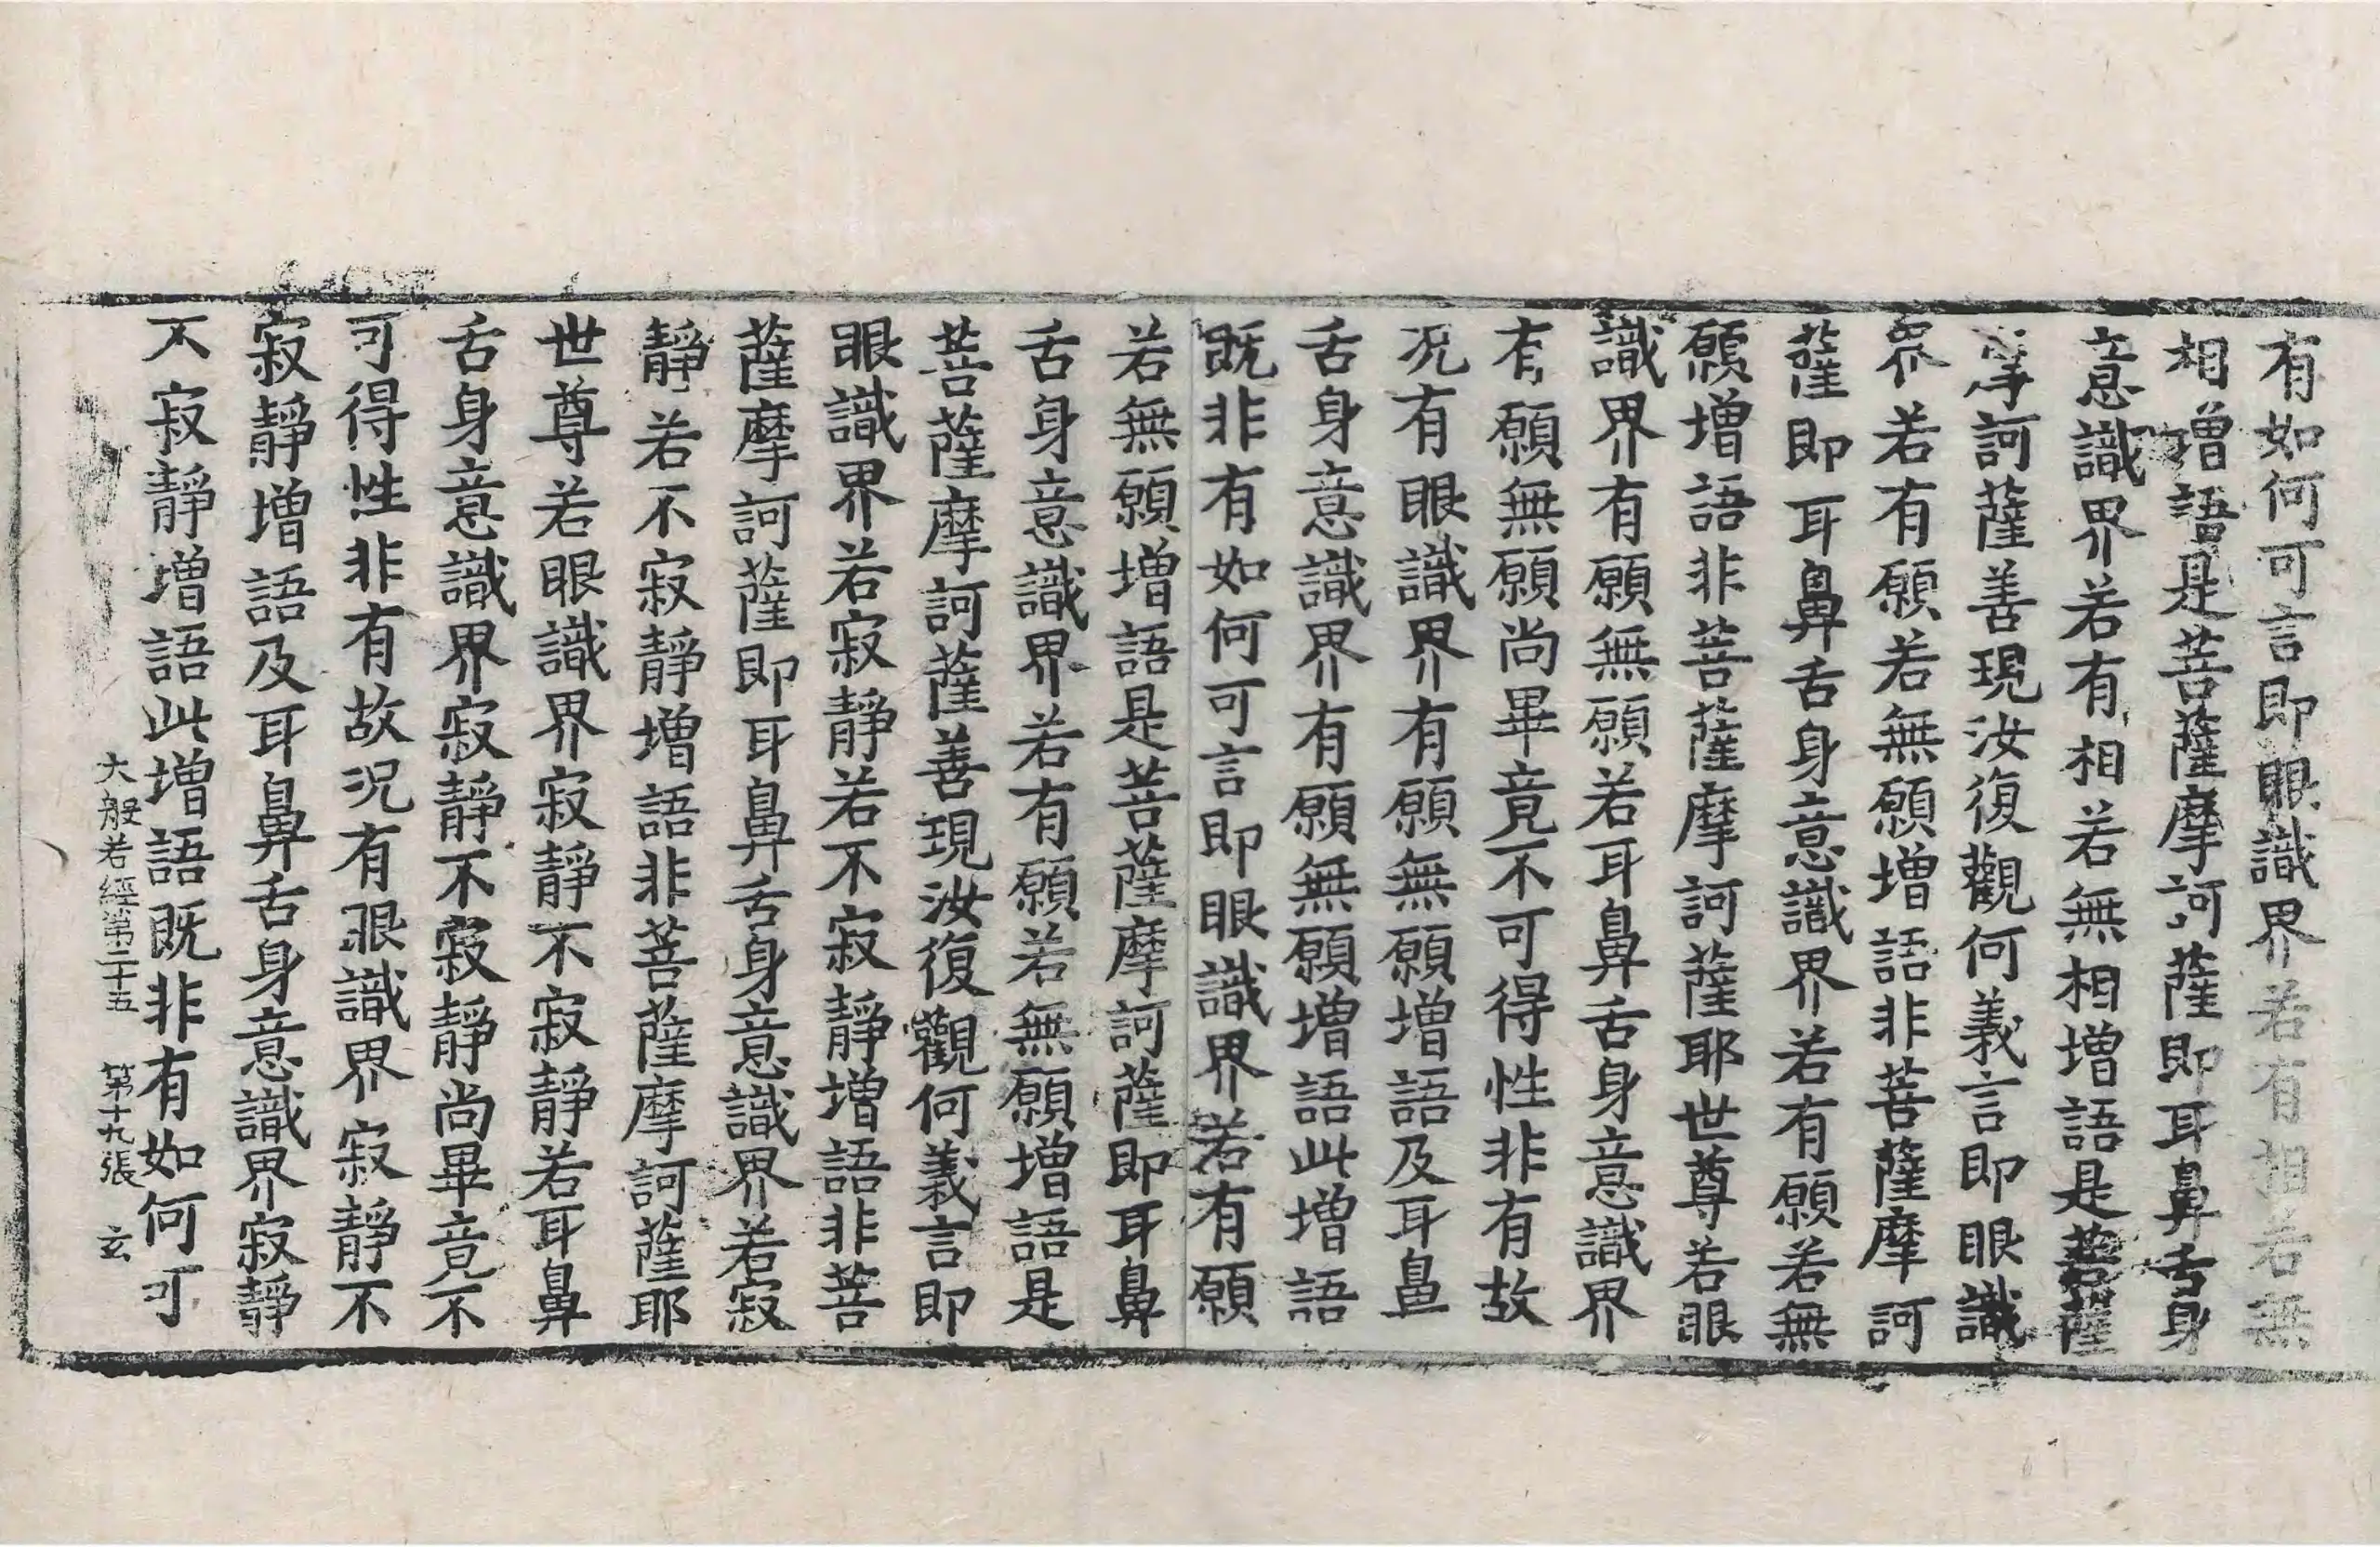 有如何可言即眼識界若有相若無
相增語是菩薩摩訶薩即耳鼻舌身
意識界若有相若無相增語是菩薩
摩訶薩善現汝復觀何義言即眼識
界若有願若無願增語非菩薩摩訶
薩即耳鼻舌身意識界若有願若無
願增語非菩薩摩訶薩耶世尊若眼
識界有願無願若耳鼻舌身意識界
有願無願尚畢竟不可得性非有故
况有眼識界有願無願增語及耳鼻
舌身意識界有願無願增語此增語
既非有如何可言即眼識界若有願
若無願增語是菩薩摩訶薩即耳鼻
舌身意識界若有願若無願增語是
菩薩摩訶薩善現汝復觀何義言即
眼識界若寂靜若不寂靜增語非菩
薩摩訶薩即耳鼻舌身意識界若寂
靜若不寂靜增語非菩薩摩訶薩耶
世尊若眼識界寂靜不寂靜若耳鼻
舌身意識界寂靜不寂靜尚畢竟不
可得性非有故况有眼識界寂靜不
寂靜增語及耳鼻舌身意識界寂靜
不寂靜增語此增語既非有如何可
大般若經第二十五 第十九張 玄